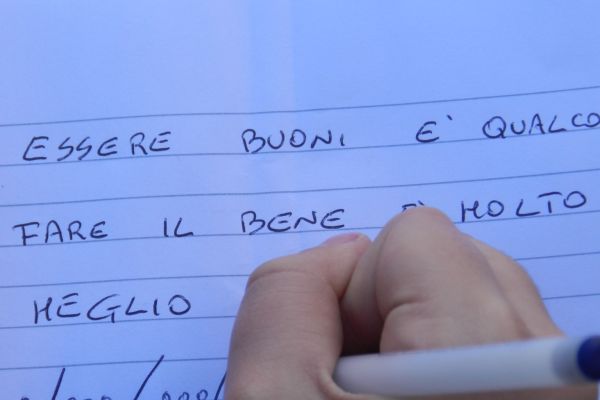 ESSERE BUONI E' QUALCO
FARE IL BENE È MOLTO
MEGLIO